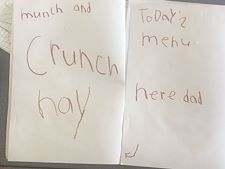 munch and
Crunch
hay
ToDay'z
menu
here dad